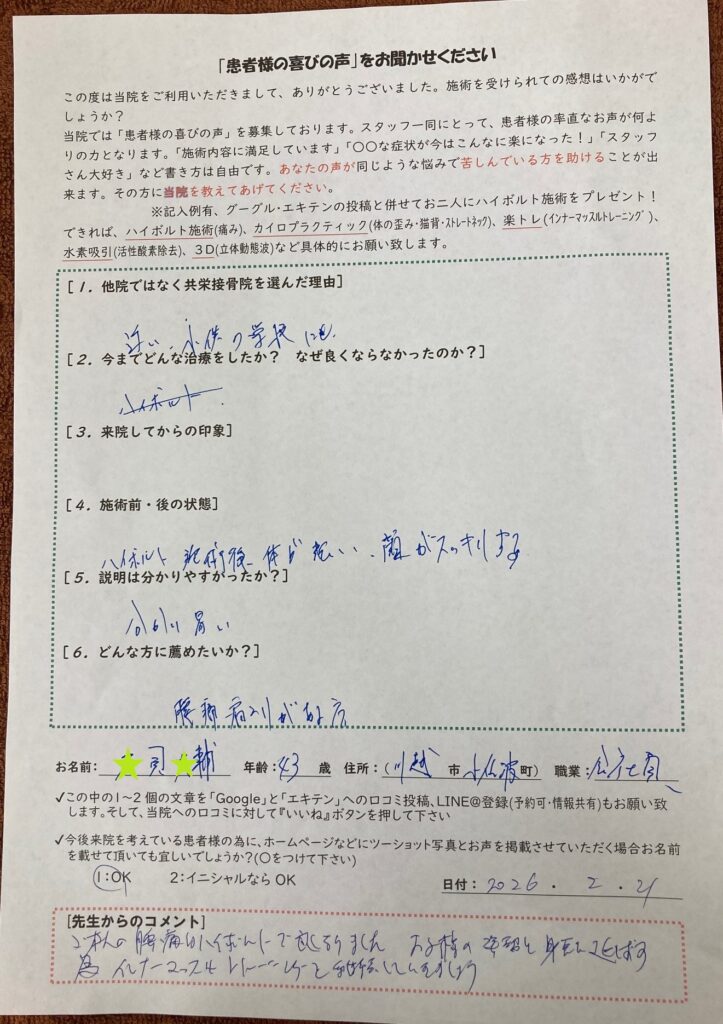 「患者様の喜びの声」をお聞かせください
この度は当院をご利用いただきまして、ありがとうございました。施術を受けられての感想はいかがで
しょうか？
当院では「患者様の喜びの声」を募集しております。スタッフ一同にとって、患者様の率直なお声が何よ
りの力となります。「施術内容に満足しています」「〇〇な症状が今はこんなに楽になった！」「スタッフ
さん大好き」など書き方は自由です。あなたの声が同じような悩みで苦しんでいる方を助けることが出
来ます。その方に当院を教えてあげてください。
※記入例有、グーグル・エキテンの投稿と併せてお二人にハイボルト施術をプレゼント！
できれば、ハイボルト施術(痛み)、カイロプラクティック(体の歪み・猫背・ストレートネック)、楽トレ(インナーマッスルトレーニング)、
水素吸引(活性酸素除去)、３D(立体動態波)など具体的にお願い致します。
[１．他院ではなく共栄接骨院を選んだ理由]
近い、子供の学校
[２．今までどんな治療をしたか？　なぜ良くならなかったのか？]
ハイボルト
[３．来院してからの印象]
[４．施術前・後の状態]
ハイボルト 施術後、体が軽い、顔がスッキリする
[５．説明は分かりやすがったか？]
分かり易い
[６．どんな方に薦めたいか？]
腰痛 肩コリがある方
お名前： 司 輔 年齢：43 歳 住所：（川越 市 小仙波町） 職業：会社員
✓この中の１～２個の文章を「Google」と「エキテン」への口コミ投稿、LINE@登録(予約可・情報共有)もお願い致
します。そして、当院への口コミに対して『いいね』ボタンを押して下さい
✓今後来院を考えている患者様の為に、ホームページなどにツーショット写真とお声を掲載させていただく場合お名前
を載せて頂いても宜しいでしょうか？(〇をつけて下さい)
１：OK ２：イニシャルなら OK 日付：2026．2．21
[先生からのコメント]
ご本人の腰痛はハイボルトで お子様の 姿勢と身長を延ばす
為 インナーマッスルトレーニングを継続していきましょう